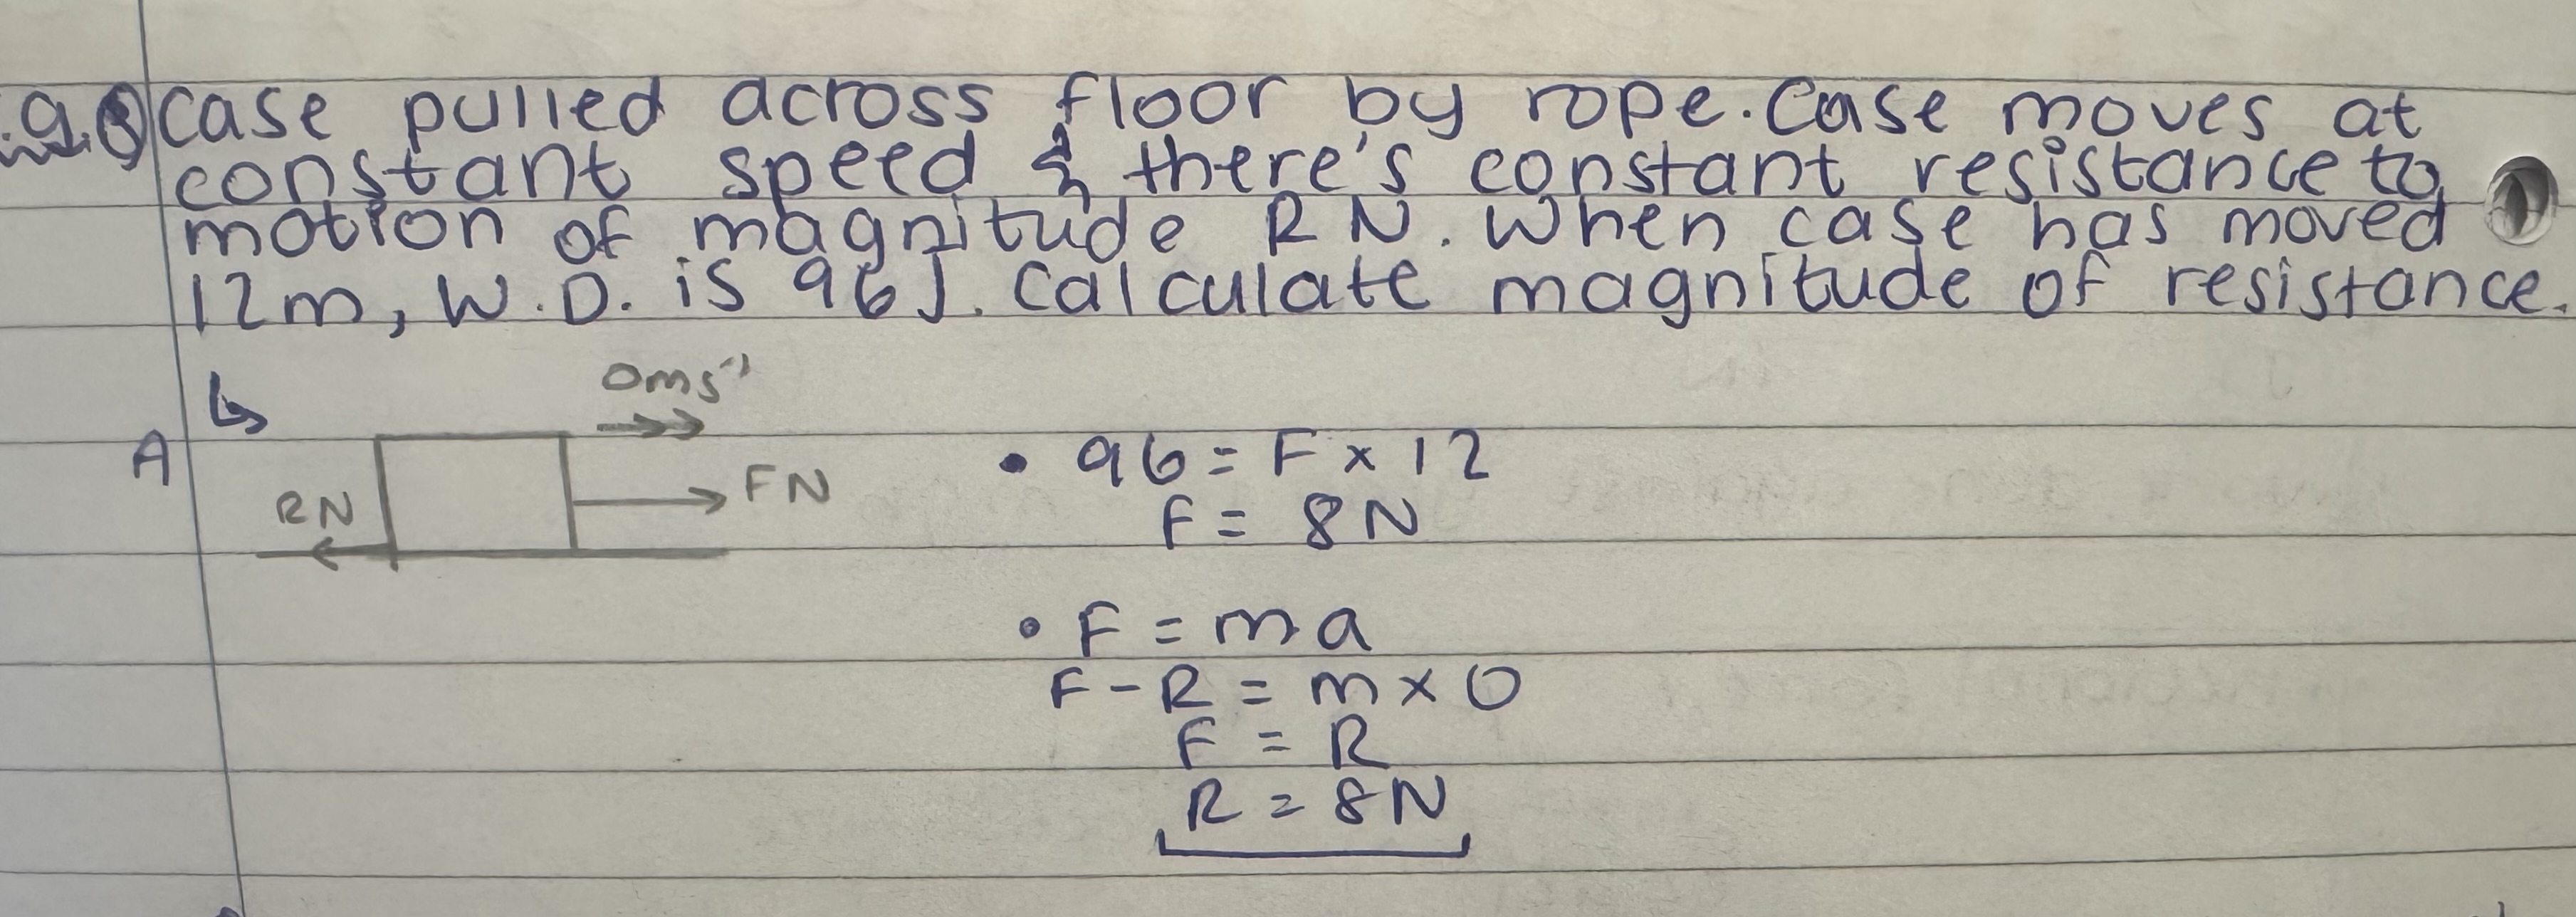 e.g. case pulled across floor by rope. Case moves at
constant speed & there's constant resistance to
motion of magnitude RN. When case has moved
12m, W.D. is 96J. Calculate magnitude of resistance.
↳
A
0ms⁻¹
RN
FN
• 96 = F × 12
F = 8N
• F = ma
F - R = m × 0
F = R
R = 8N